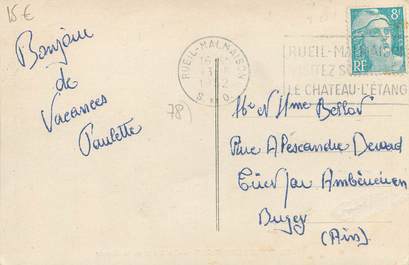 15 €
Bonjour
de
Vacances
Paulette
78)
RUEIL-MALMAISON
S. & O.
RUEIL-MALMAISON
LE CHATEAU-L'ETANG
8F
RF
Mr et Mme
Rue Alexandre
Ambérieu en
Bugey
(Ain)